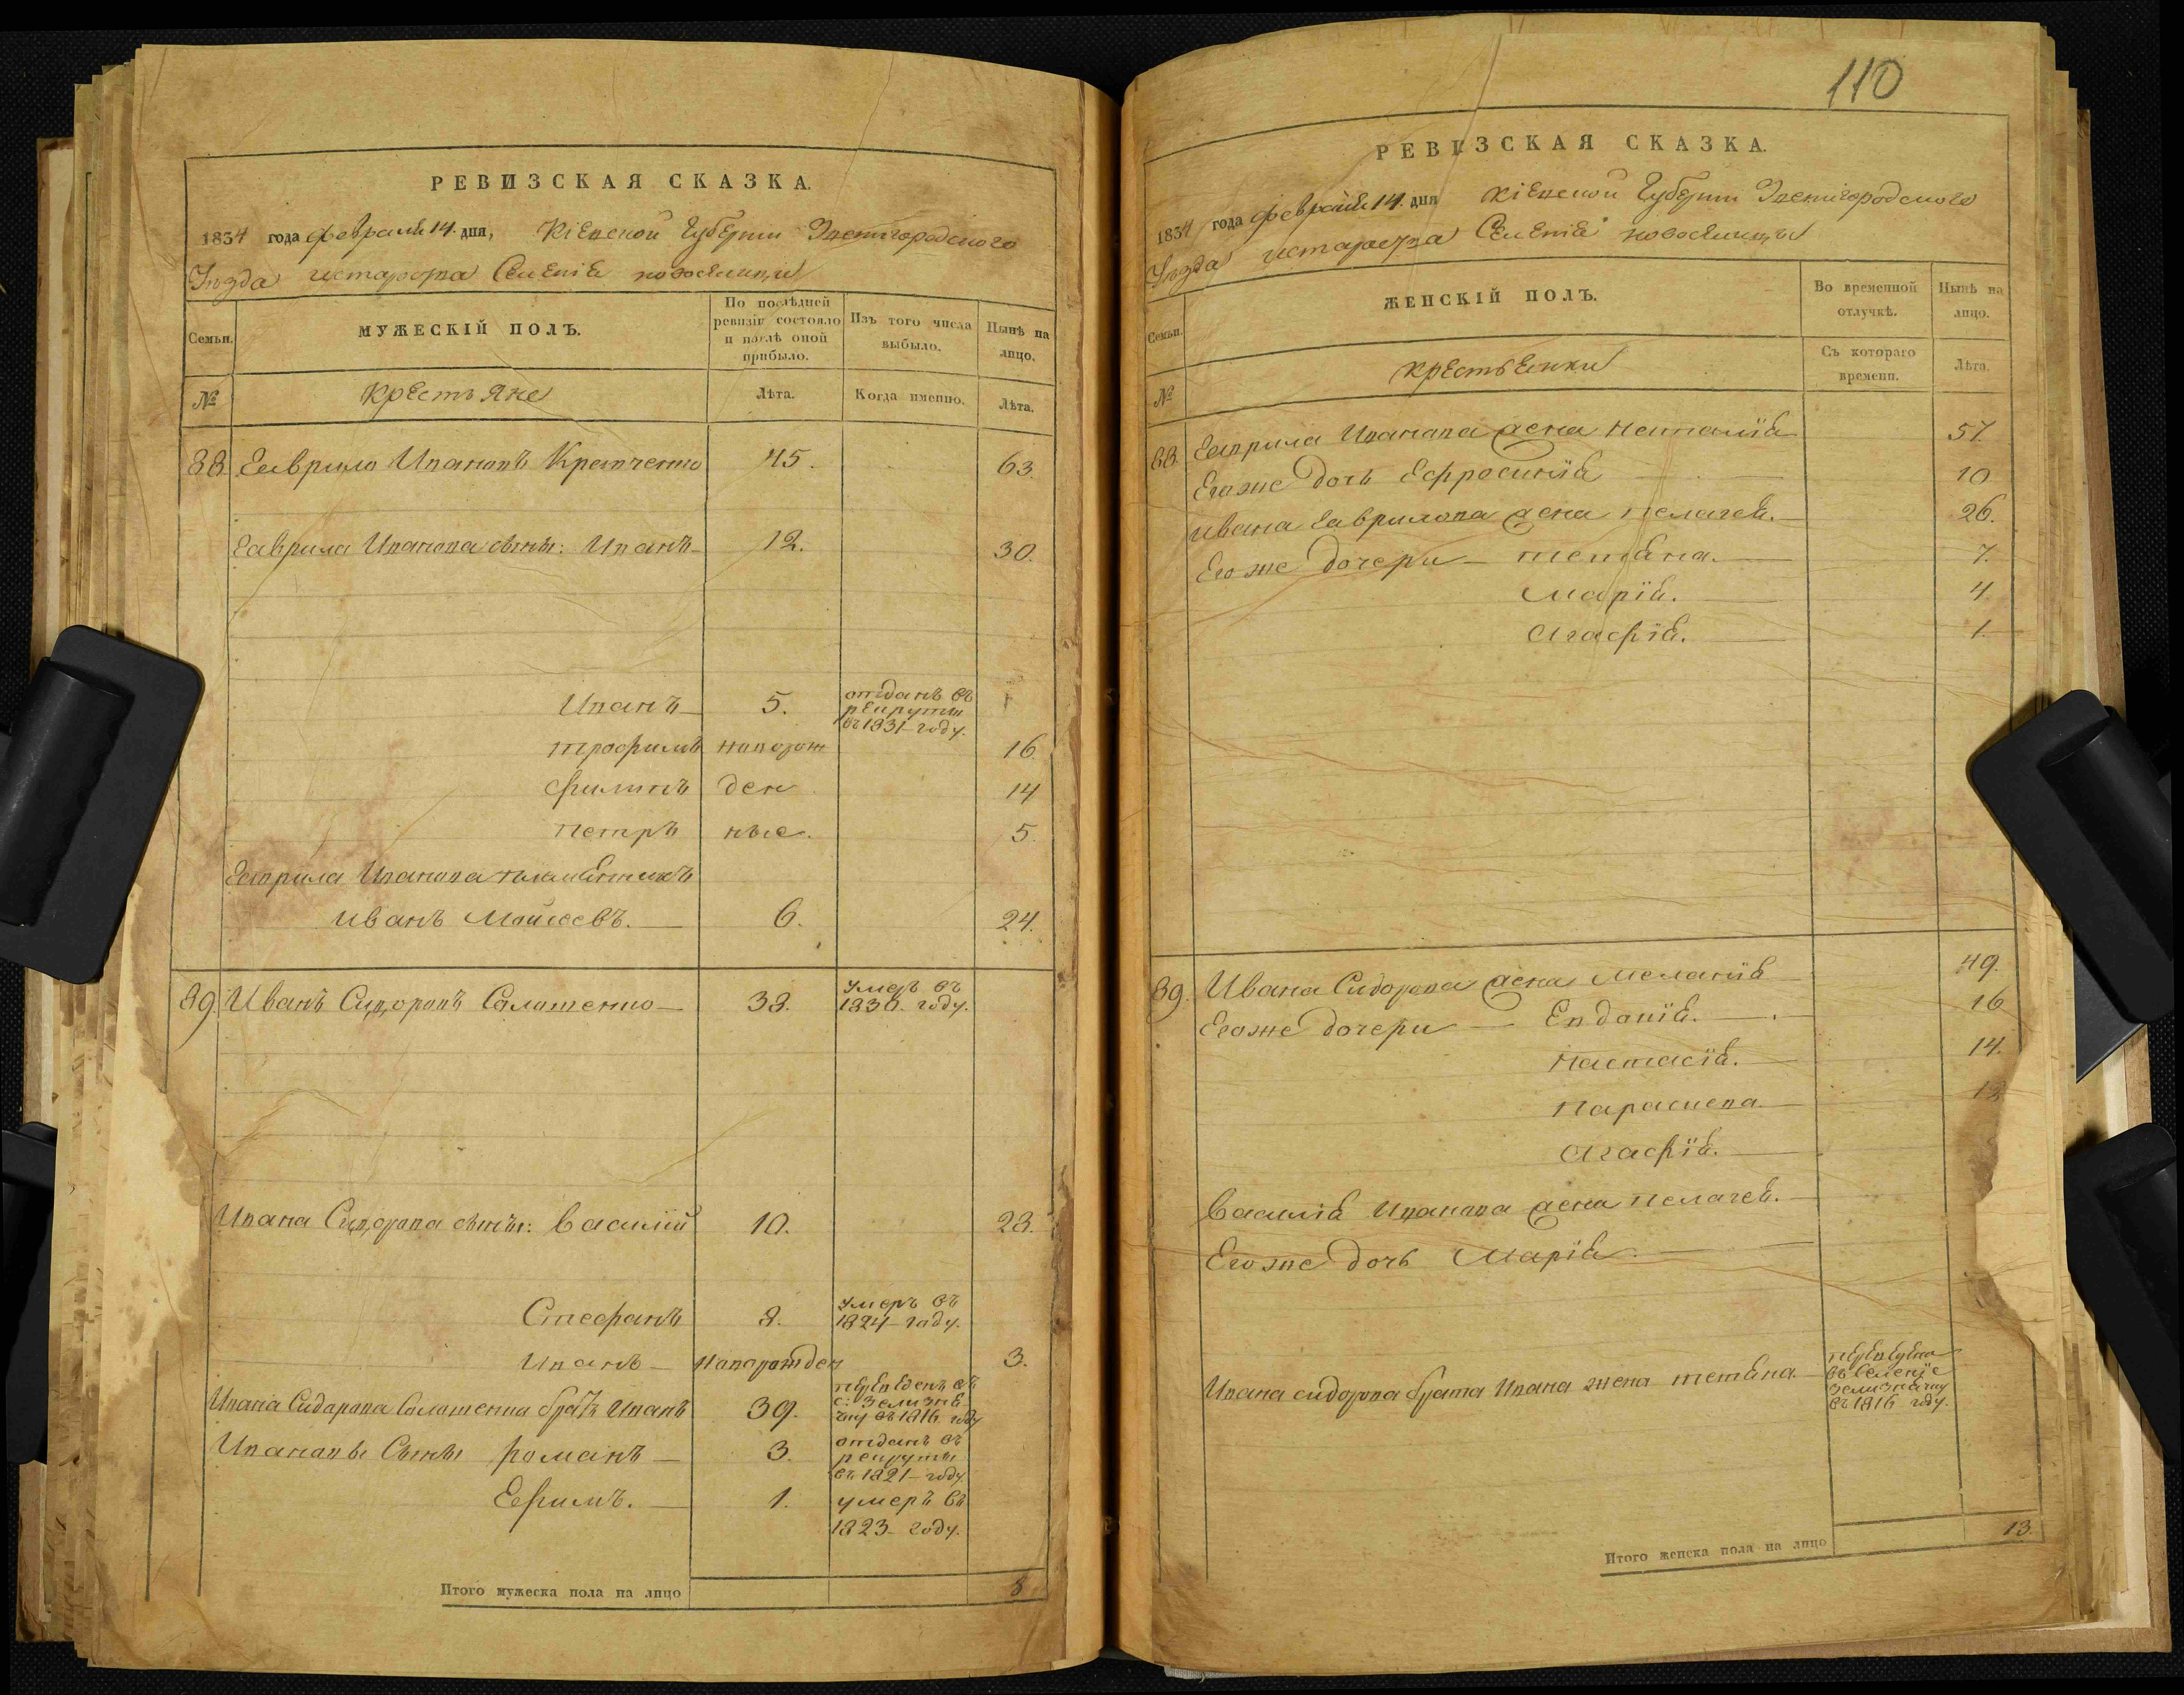 РЕВИЗСКАЯ СКАЗКА.
1834 года февраля 14. дня, Кіевской Губерніи Звенигородского
Уѣзда Староства Селенія новоселицы
Семьи.
МУЖЕСКІЙ ПОЛЪ.
По послѣдней ревизіи состояло и послѣ оной прибыло.
Изъ того числа выбыло.
Нынѣ на лицо.
№
крестьяне
Лѣта.
Когда именно.
Лѣта.
88. Гаврило Ивановъ Кравченко 45. 63.
Гаврила Иванова сынъ: Иванъ 12. 30.
Иванъ 5. отданъ въ рекруты въ 1831 году.
трофимъ новорож 16
филипъ ден 14
петръ ные. 5.
Гаврила Иванова племѣнникъ
иванъ Мойсеевъ. 6. 24.
89. Иванъ Сидоровъ Саматенко 38. умеръ въ 1830. году.
Ивана Сидорова сынъ: василій 10. 28.
Стефанъ 8. умеръ въ 1824 году.
Иванъ новорожден 3.
Ивана Сидорова Саматенка братъ Иванъ 39. перѣведенъ въ с: Зелизнѣчку въ 1816 году
Ивановы Сыны романъ 3. отданъ въ рекруты въ 1821 году.
Ефимъ. 1. умеръ въ 1823 году.
Итого мужеска пола на лицо 8
110
РЕВИЗСКАЯ СКАЗКА.
1834 года февраля 14. дня Кіевской Губерніи Звенигородского
Уѣзда Староства Селенія новоселицы
Семьи.
ЖЕНСКІЙ ПОЛЪ.
Во временной отлучкѣ.
Нынѣ на лицо.
№
крестьянки
Съ котораго времени.
Лѣта.
88. Гаврила Иванова жена наталія 57.
Его же дочь Ефросинія 10
ивана Гаврилова жена пелагея. 26.
Его же дочери тетяна. 7.
Марія. 4.
Агафія. 1.
89. Ивана Сидорова жена Меланія 49.
Его же дочери Евдокія. 16
настасія. 14.
параскева.
Агафія.
василія Иванова жена пелагея.
Его же дочь Марія
Ивана сидорова брата Ивана жена тетяна. перѣведена въ селеніе Зелизнячку въ 1816 году.
Итого женска пола на лицо 13.